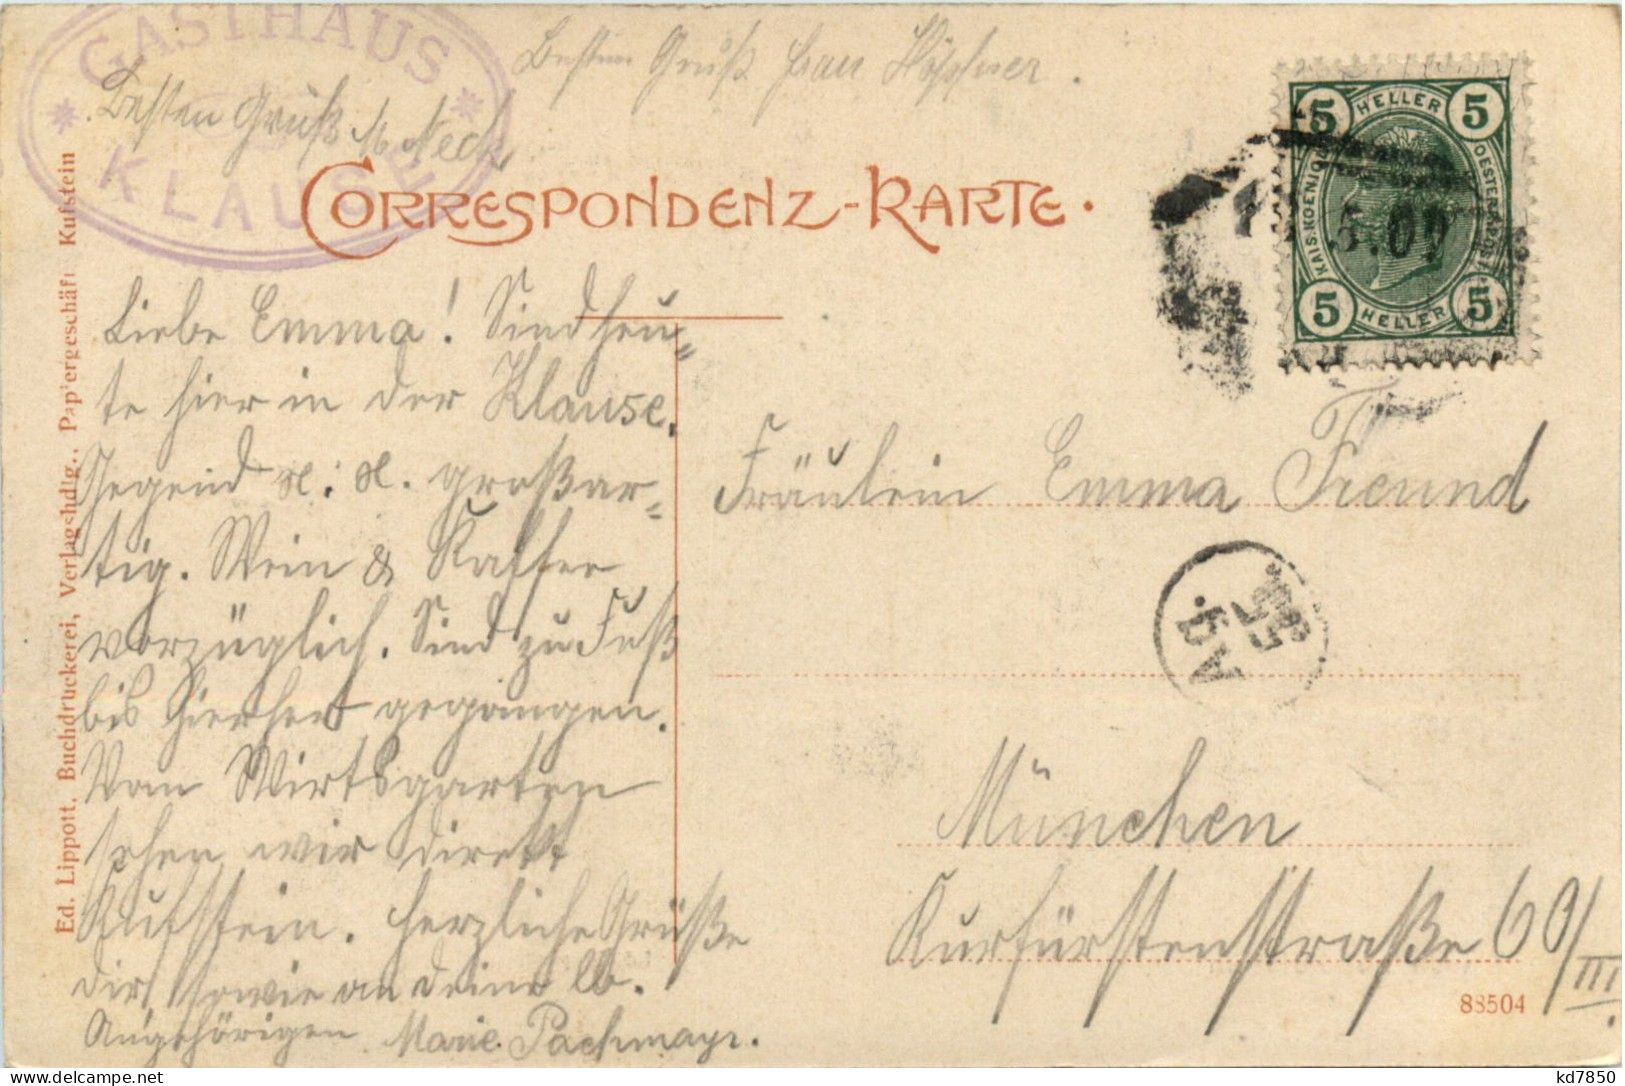 GASTHAUS
KLAUSE
Besten Gruß Frau Höpfner.
Besten Gruß M. Neck
CORRESPONDENZ-KARTE.
5 HELLER 5
KAIS. KOENIGL. OESTERR. POST
5 HELLER 5
5.09
Liebe Emma! Sind heu-
te hier in der Klause.
Gegend
großar-
tig. Wein & Kaffee
vorzüglich. Sind zu Fuß
bis hierher gegangen.
Vom Wirtsgarten
sehen wir direkt
Kufstein. Herzliche Grüße
dir sowie an deine lb.
Angehörigen Marie Pachmayr.
Fräulein Emma Freund
München
Kurfürstenstraße 60/III.
88504
Ed. Lippott, Buchdruckerei, Verlagshdlg., Papiergeschäft Kufstein
www.delcampe.net
kd7850